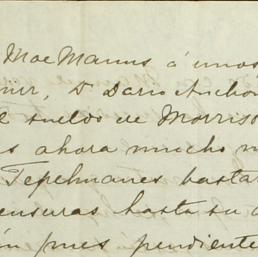 Mac Manus á unos
D. Dario Anchon
sueldo de Morriso
s ahora mucho m
Tepehuanes basta
ensuras hasta su
pues pendiente